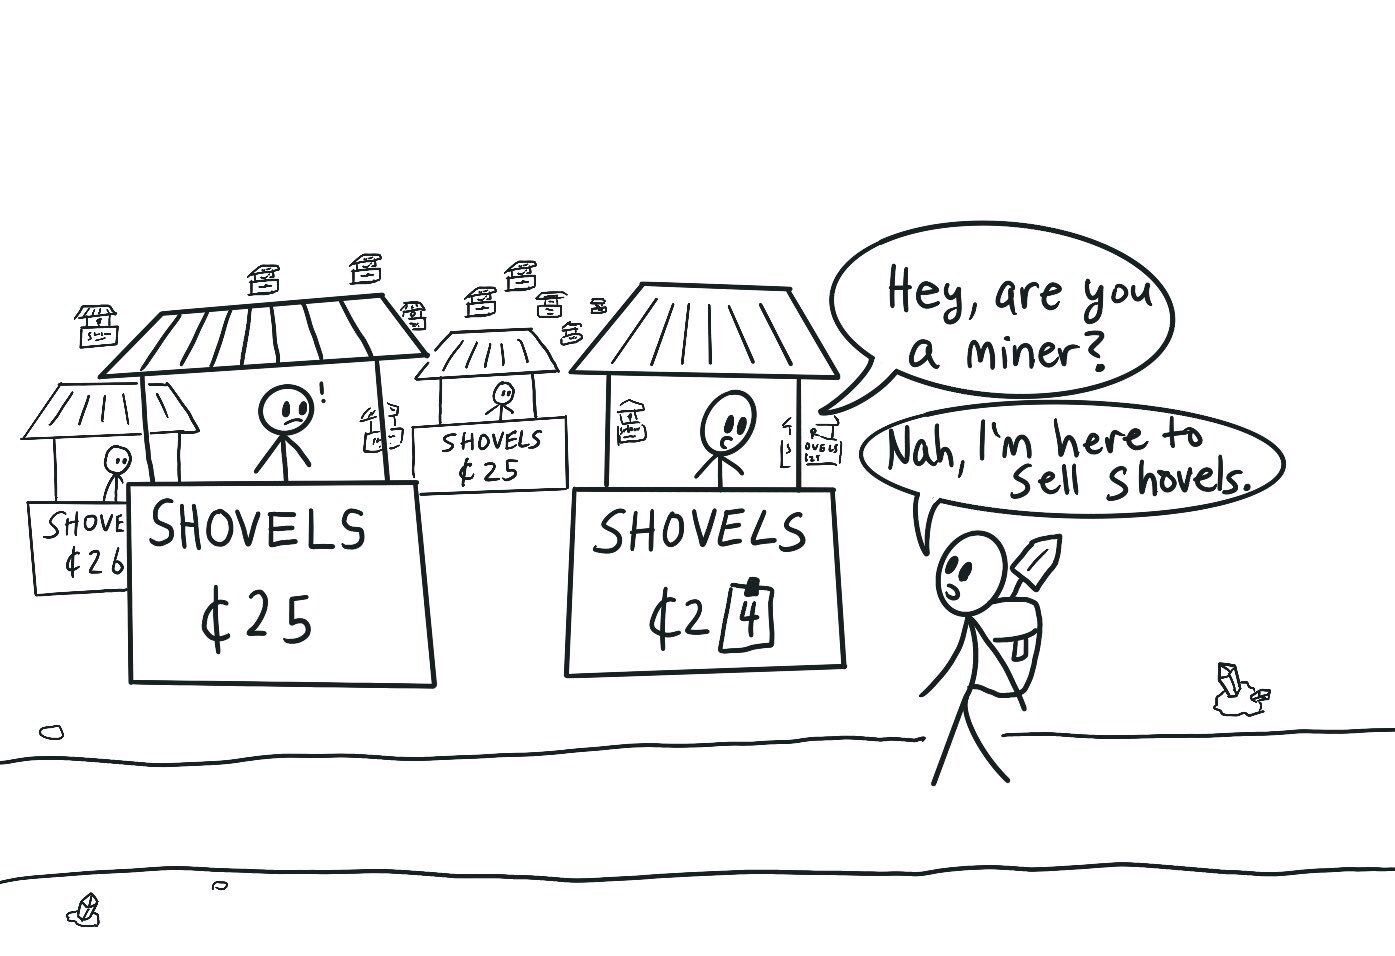 Hey, are you
a miner?
Nah, I'm here to
sell shovels.
!
SHOVELS
¢25
SHOVELS
¢24
SHOVELS
¢25
SHOVE
¢26